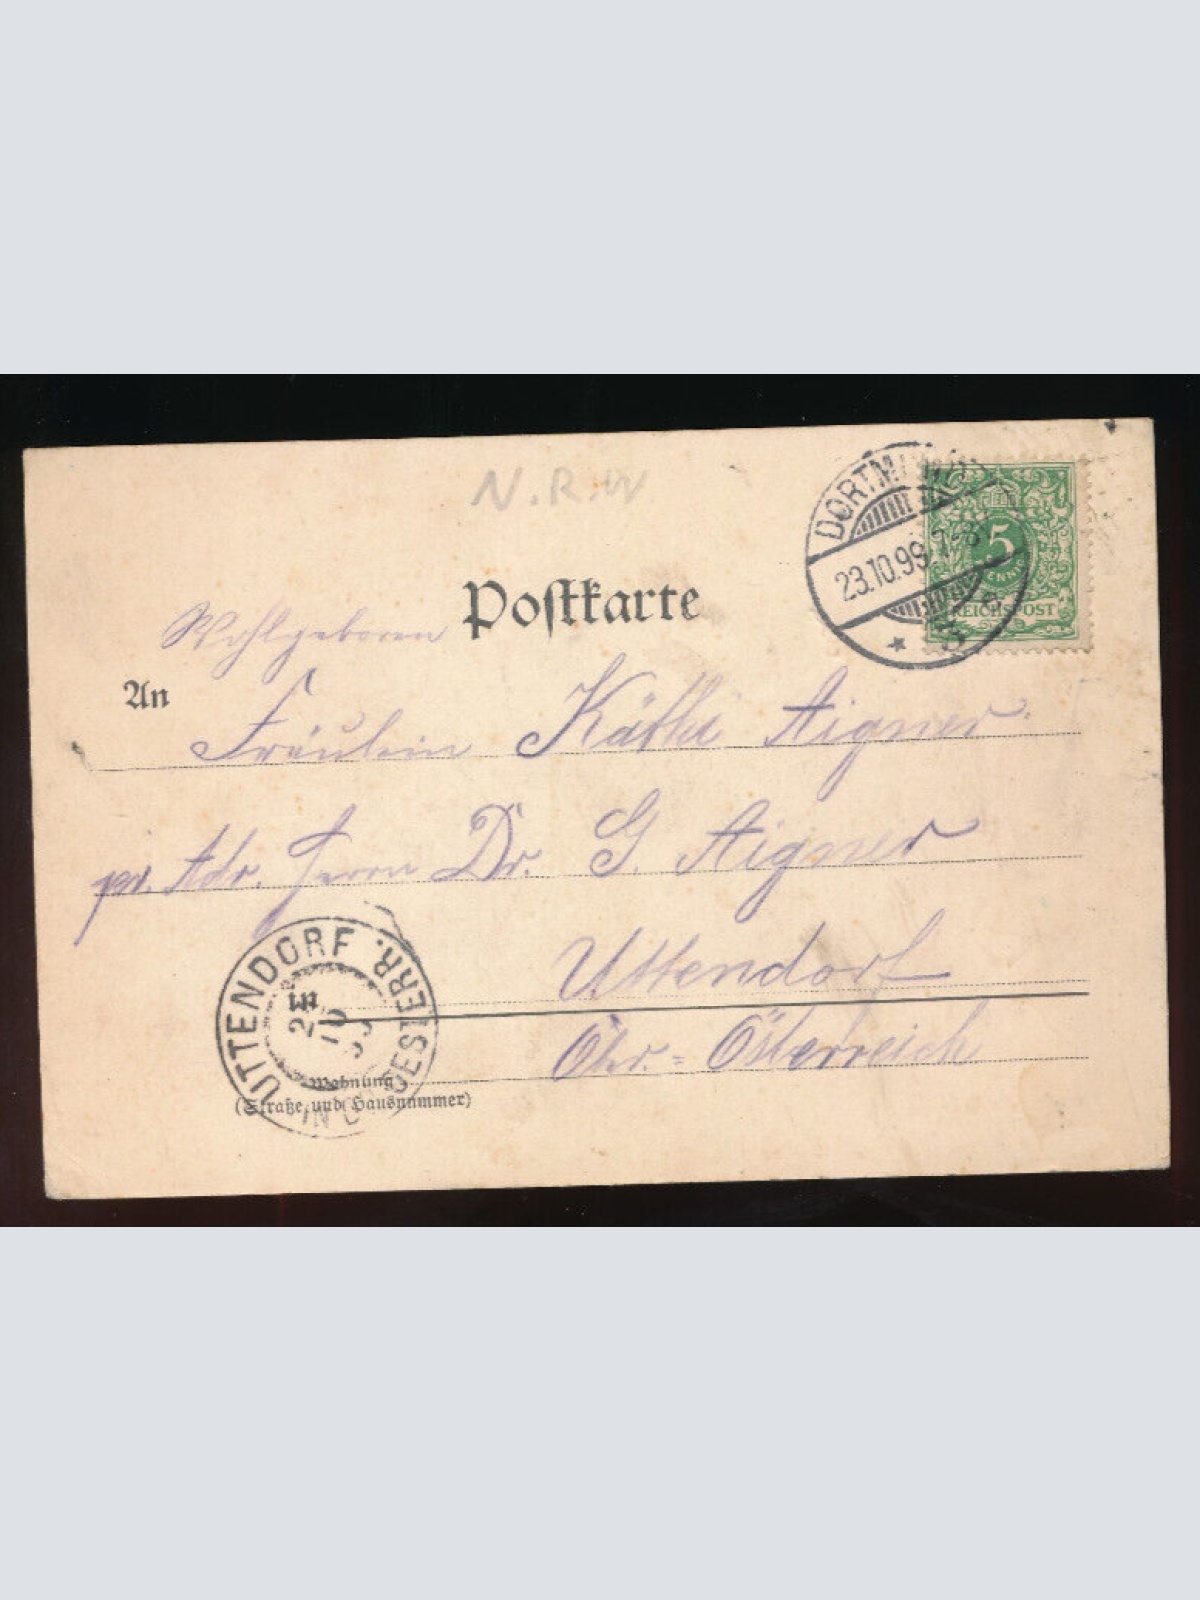 N.R.W
Postkarte
DORTMUND
23.10.99. 7-8
5
PFENNIG
REICHSPOST
Wohlgeboren
An
Fräulein Käthe Aigner
pr. Adr. Herrn Dr. G. Aigner
Uttendorf
Obr.=Österreich
UTTENDORF
IN OBOESTERR.
10
99
Wohnung
(Straße und Hausnummer)